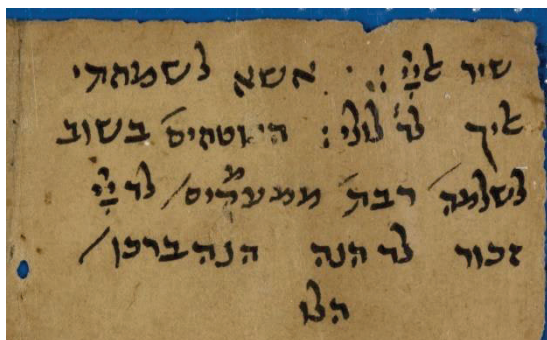 שיר אליי : אשא לשמחתי
אליך לד לולי : הבוטחים בשוב
לשלמה רבת ממעמקים/ לד יי
זכור לד הנה הנה ברכו/
הלו